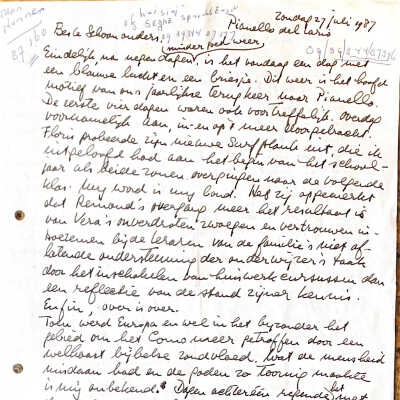 zondag 27 juli 1987
Pianello del Lario
Beste Schoonouders,
minder goed weer,
Eindelijk na negen dagen, is het vandaag een dag met
een blauwe lucht en een briesje. Dit weer is het hoofd
motief van ons jaarlijkse terugkeer naar Pianello.
De eerste vier dagen waren ook voortreffelijk. Overdag
voornamelijk aan, in en op 't meer doorgebracht.
Floris probeerde zijn nieuwe Surfplank uit, die ik
uitgeloofd had aan het begin van het school-
jaar als beide zonen overgingen naar de volgende
klas. My word is my bond. Het zij opgemerkt
dat Reinoud's overgang meer het resultaat is
van Vera's onverdroten zwoegen en vertrouwen in-
boezemen bij de leraren van de familie's niet af-
latende ondersteuning der onderwijzer's taak
door het inschakelen van huiswerkcursussen dan
een reflectie van de stand zijner kennis.
Enfin, over is over.
Toen werd Europa en wel in het bijzonder het
gebied om het Como meer getroffen door een
welhaast bijbelse zondvloed. Wat de mensheid
misdaan had en de goden zo toornig maakte
is mij onbekend. Dagen achtereen regende het met